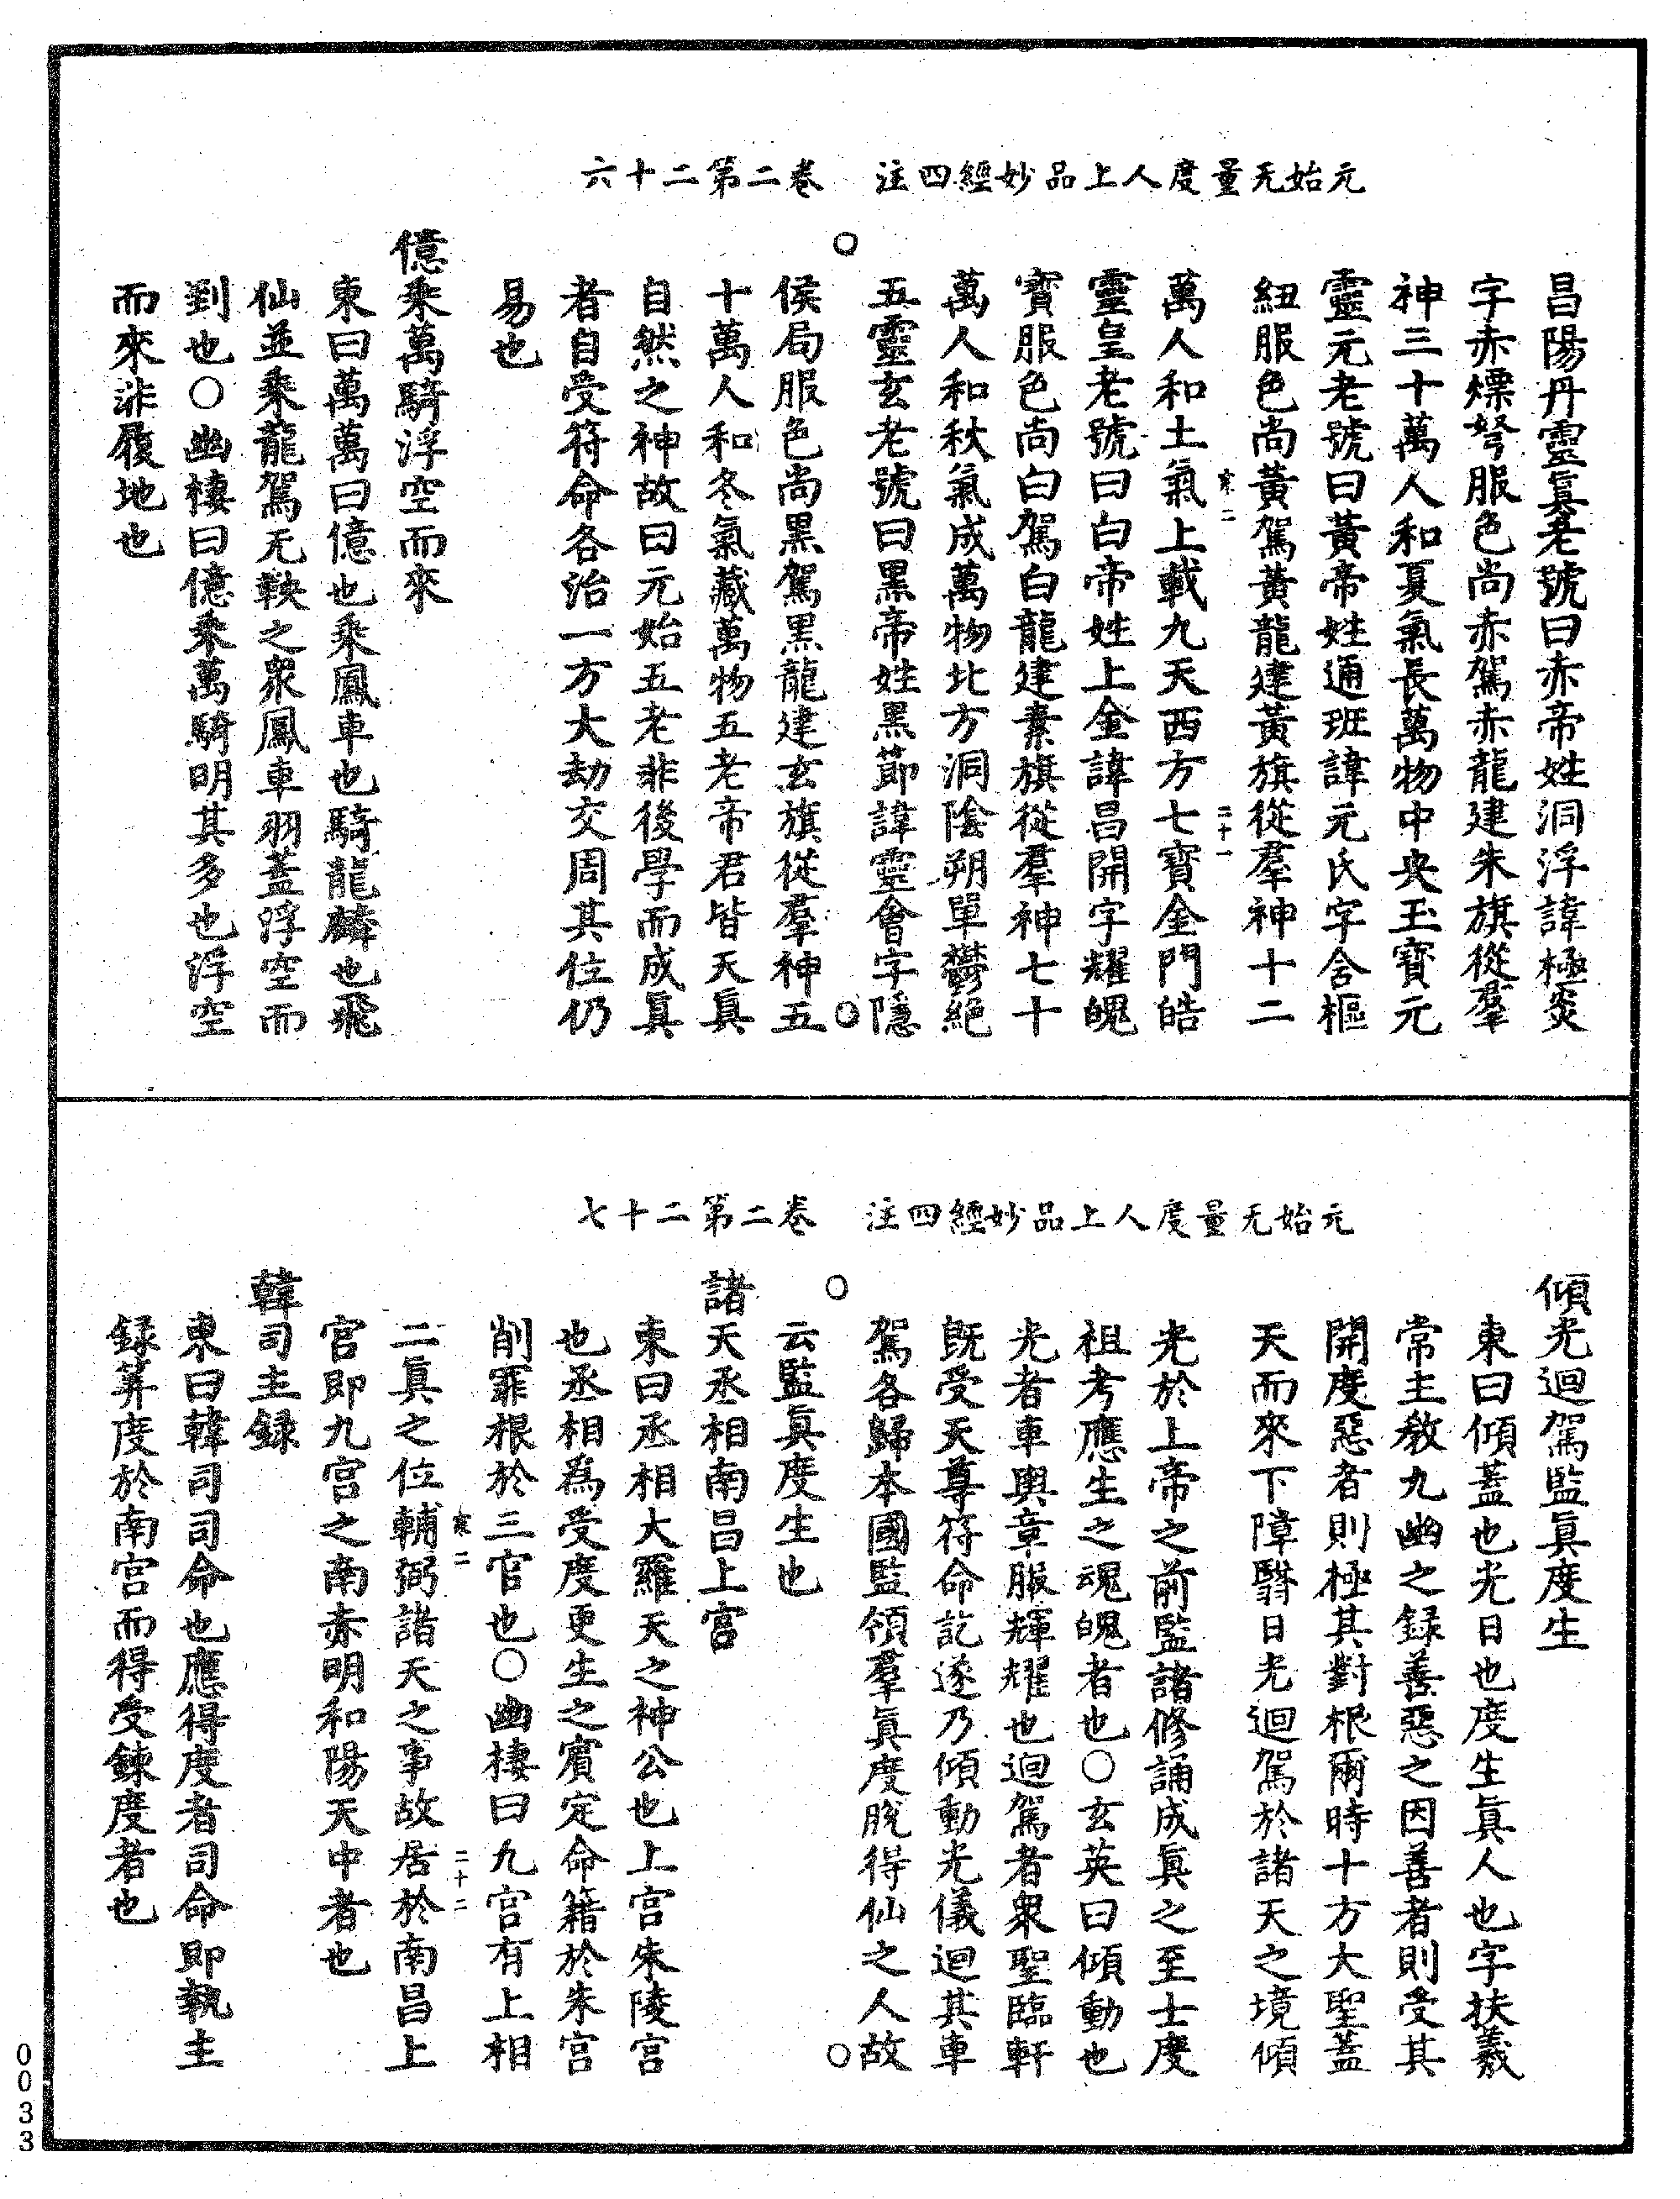 元始无量度人上品妙經四注　卷二第二十六
昌陽丹靈真老號曰赤帝姓洞浮諱極炎
字赤熛弩服色尚赤駕赤龍建朱旗從羣
神三十萬人和夏氣長萬物中央玉寶元
靈元老號曰黃帝姓通班諱元氏字含樞
紐服色尚黃駕黃龍建黃旗從羣神十二
寒二　二十一
萬人和土氣上載九天西方七寶金門皓
靈皇老號曰白帝姓上金諱昌開字耀魄
寶服色尚白駕白龍建素旗從羣神七十
萬人和秋氣成萬物北方洞陰朔單鬱絕
五靈玄老號曰黑帝姓黑節諱靈會字隱
侯局服色尚黑駕黑龍建玄旗從羣神五
十萬人和冬氣藏萬物五老帝君皆天真
自然之神故曰元始五老非後學而成真
者自受符命各治一方大劫交周其位仍
易也
億乘萬騎浮空而來
東曰萬萬曰億也乘鳳車也騎龍麟也飛
仙並乘龍駕无鞅之衆鳳車羽蓋浮空而
到也○幽棲曰億乘萬騎明其多也浮空
而來非履地也
元始无量度人上品妙經四注　卷二第二十七
傾光迴駕監真度生
東曰傾蓋也光日也度生真人也字扶羲
常主教九幽之録善惡之因善者則受其
開度惡者則極其對根爾時十方大聖蓋
天而來下障翳日光迴駕於諸天之境傾
光於上帝之前監諸修誦成真之至士度
祖考應生之魂魄者也○玄英曰傾動也
光者車輿章服輝耀也迴駕者衆聖臨軒
旣受天尊符命訖遂乃傾動光儀迴其車
駕各歸本國監領羣真度脫得仙之人故
云監真度生也
諸天丞相南昌上宮
東曰丞相大羅天之神公也上宮朱陵宮
也丞相爲受度更生之賓定命籍於朱宮
削罪根於三官也○幽棲曰九宮有上相
寒二　二十二
二真之位輔弼諸天之事故居於南昌上
宮即九宮之南赤明和陽天中者也
韓司主録
東曰韓司司命也應得度者司命即執主
録筭度於南宮而得受鍊度者也
0033